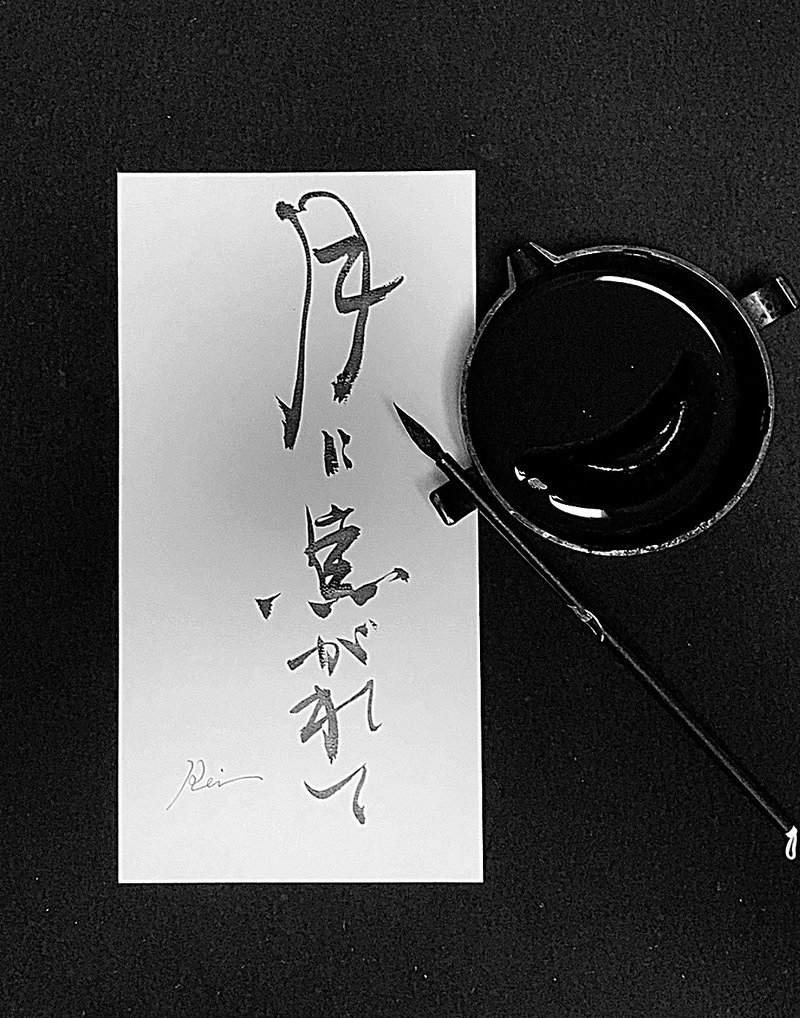 月に焦がれて
Kei